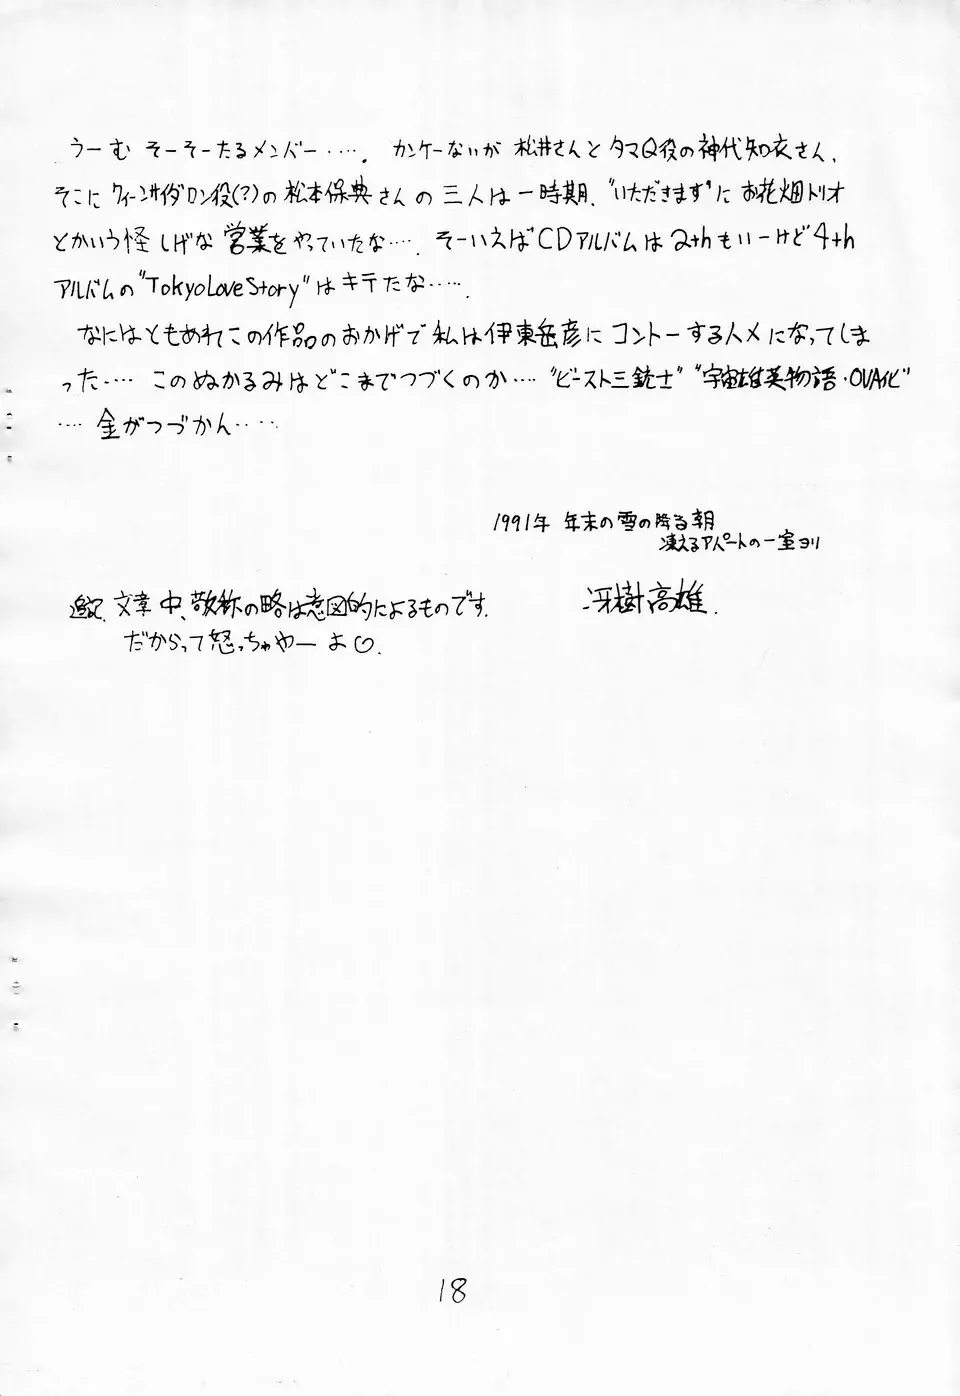 うーむ そーそーたるメンバー‥‥. カンケーないが 松井さんと タマQ役の神代知衣さん、
そこに クィーンサイダロン役(?)の松本保典さんの 三人は 一時期、"いただきます"に お花畑トリオ
とかいう怪しげな 営業をやっていたな‥‥. そーいえばCDアルバムは 2thもいーけど 4th
アルバムの"TokyoLoveStory"はキテたな‥‥.
なにはともあれこの作品のおかげで私は伊東岳彦にコントーする人メになってしま
った‥‥ このぬかるみはどこまでつづくのか‥‥"ビースト三銃士""宇宙雄英物語・OVA化"
‥‥ 金がつづかん‥‥
1991年 年末の雪の降る朝
凍えるアパートの一室ヨリ
冴樹高雄.
追記. 文章中、敬称の略は意図的によるものです.
だからって怒っちゃやーよ♡.
18